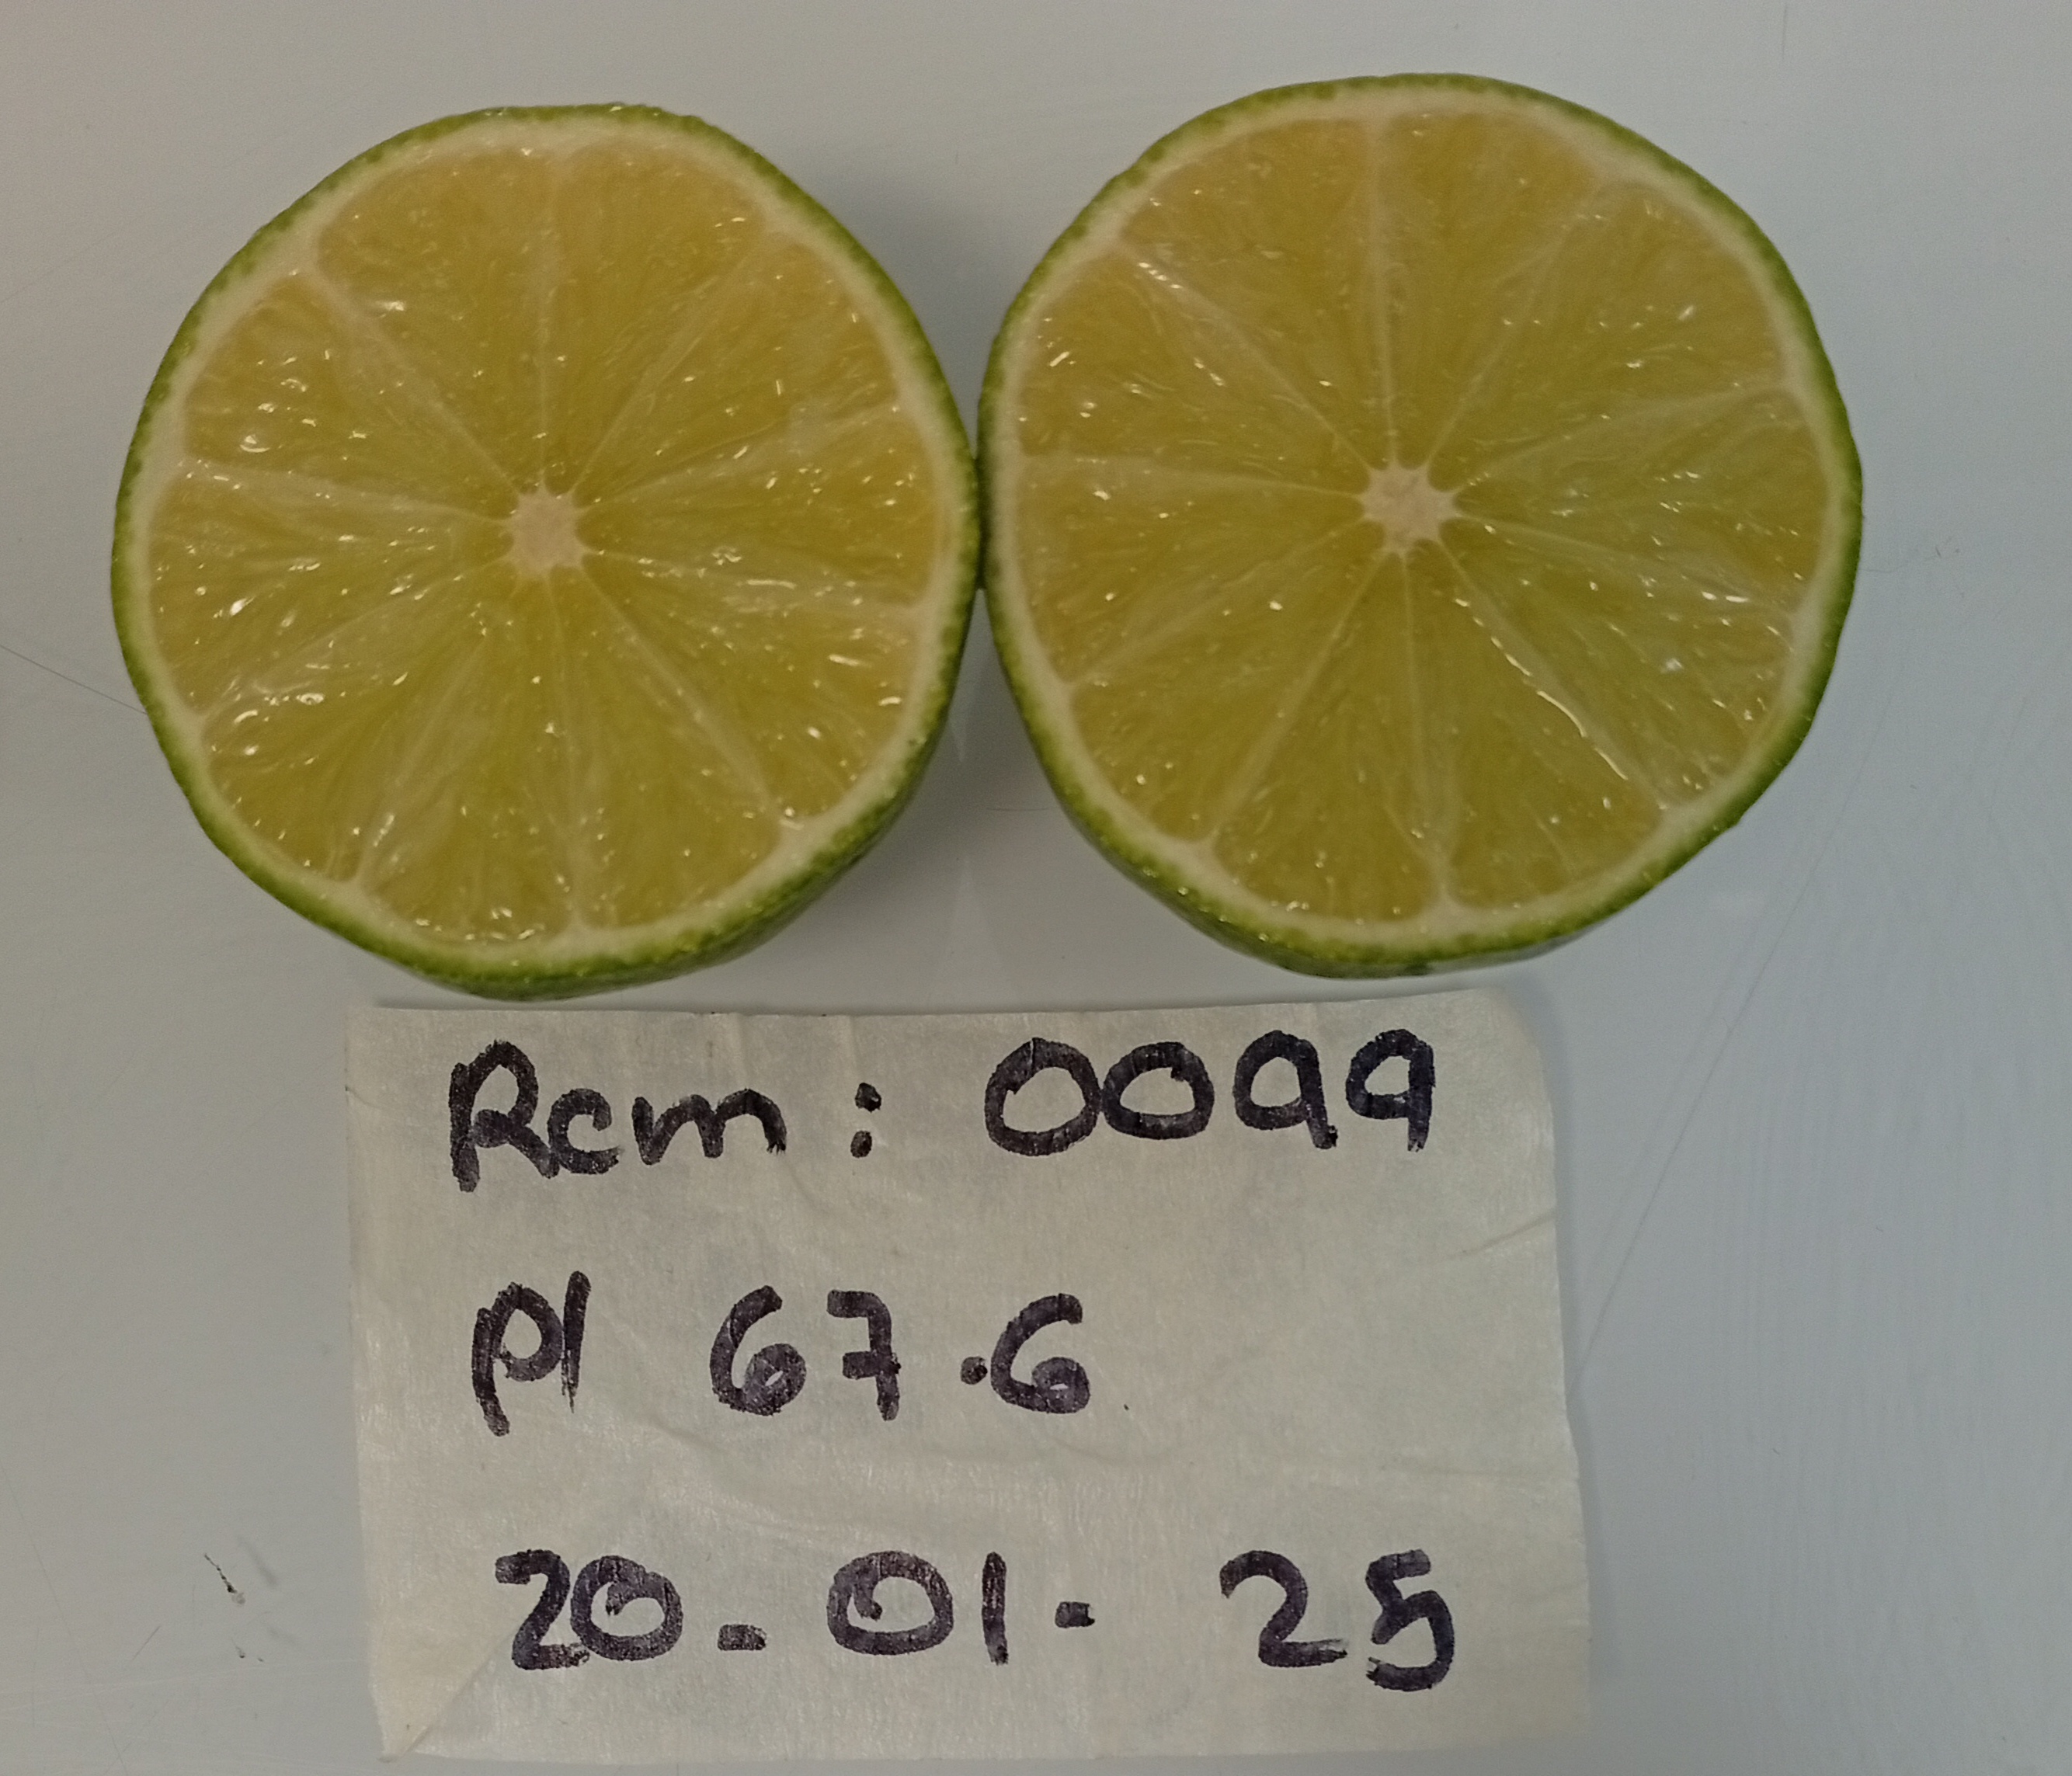 Rcm: 0099
pl 67.6
20-01-25